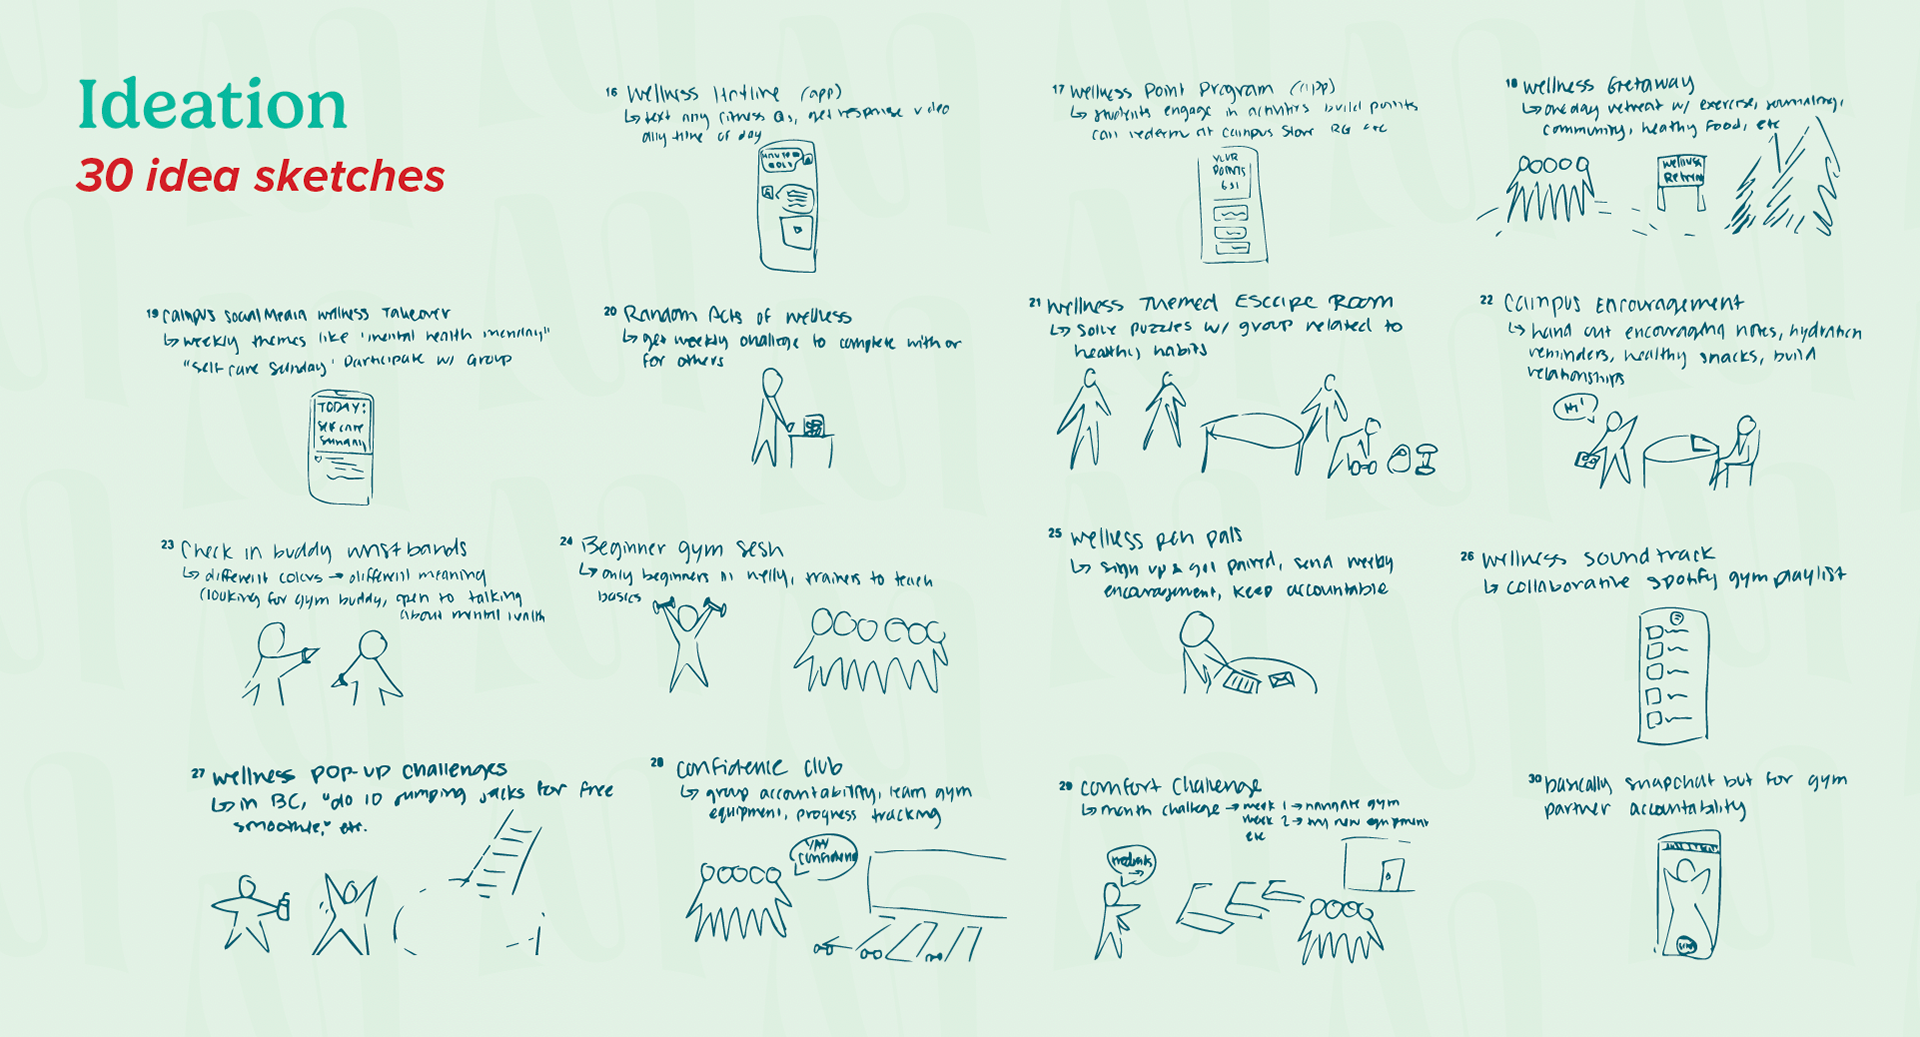 Ideation
30 idea sketches
16 Wellness Hotline (app)
↳ text any fitness Qs, get response video
any time of day
17 Wellness Point Program (app)
↳ students engage in activities build points
can redeem at campus store RG etc
YOUR
POINTS
631
18 Wellness Getaway
↳ one day retreat w/ exercise, journaling,
community, healthy food, etc
Wellness
Retreat
19 Campus Social Media Wellness Takeover
↳ weekly themes like 'mental health monday"
"self care Sunday' Participate w/ Group
TODAY:
Self care
Sunday
20 Random Acts of Wellness
↳ get weekly challenge to complete with or
for others
21 Wellness Themed Escape Room
↳ Solve puzzles w/ group related to
healthy habits
22 Campus Encouragement
↳ hand out encouraging notes, hydration
reminders, healthy snacks, build
relationships
Hi!
23 Check in buddy wristbands
↳ different colors → different meaning
(looking for gym buddy, open to talking
about mental health
24 Beginner gym sesh
↳ only beginners in nelly, trainers to teach
basics
25 Wellness pen pals
↳ sign up & get paired, send weekly
encouragement, keep accountable
26 Wellness soundtrack
↳ collaborative spotify gym playlist
27 Wellness POP-UP challenges
↳ in BC, "do 10 jumping jacks for free
smoothie," etc.
28 Confidence club
↳ group accountability, learn gym
equipment, progress tracking
YAY
confidence
29 Comfort Challenge
↳ month challenge → week 1 → navigate gym
week 2 → try new equipment
etc
30 basically snapchat but for gym
partner accountability